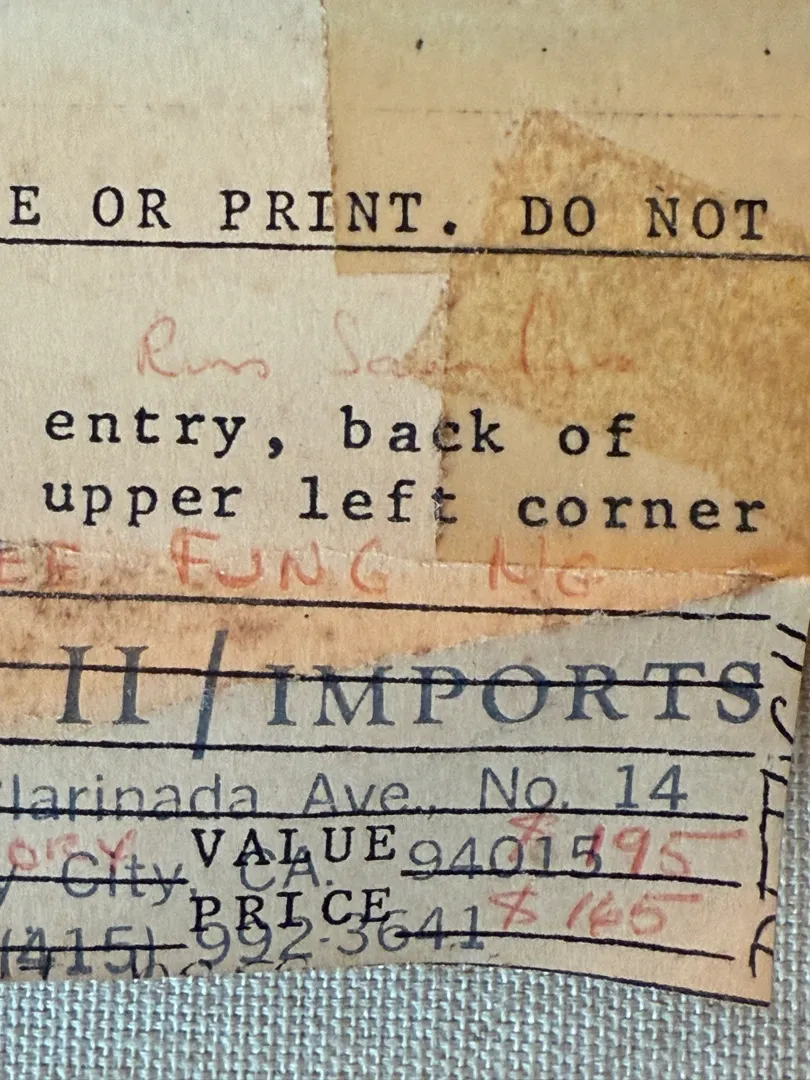 E OR PRINT. DO NOT
Russ
entry, back of
upper left corner
EE FUNG NG
II / IMPORTS
larinada Ave., No. 14
VALUE $195
y City, CA. 94015
PRICE $165
(415) 992-3641